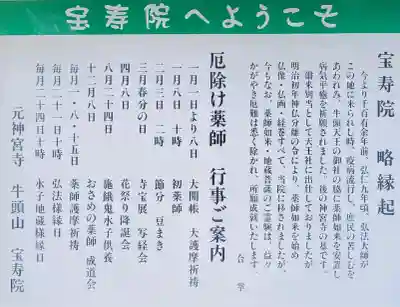 宝寿院へようこそ
宝寿院 略縁起
今より千百有余年前、弘仁九年頃、弘法大師が
この地に来られし時、疫病流行し、庶民の苦しむを
あわれみ、牛頭天王の御社の脇に薬師如来を安置し
病気平癒を祈願されました。後の神宮寺の基です。
爾来別当として天王社に出仕しておりましたが
明治初年神仏分離の令により、薬師如来を始め
仏像・仏画・経巻すべて、当院に移されましたが、
今もなお、薬師如来・地蔵菩薩のご霊験は、益々
かがやき厄難は悉く除かれ、所願成就いたします。
合掌
厄除け薬師 行事ご案内
一月一日より八日 大開帳 大護摩祈祷
一月八日 十時 初薬師
二月三日 二時 節分 豆まき
三月春分の日 寺宝展 写経会
四月八日 花祭り降誕会
八月二十四日 施餓鬼水子供養
十二月八日 おさめの薬師 成道会
毎月一・八・十五日 薬師護摩祈祷
毎月二十一日十時 弘法様縁日
毎月二十四日十時 水子地蔵様縁日
元神宮寺 牛頭山 宝寿院